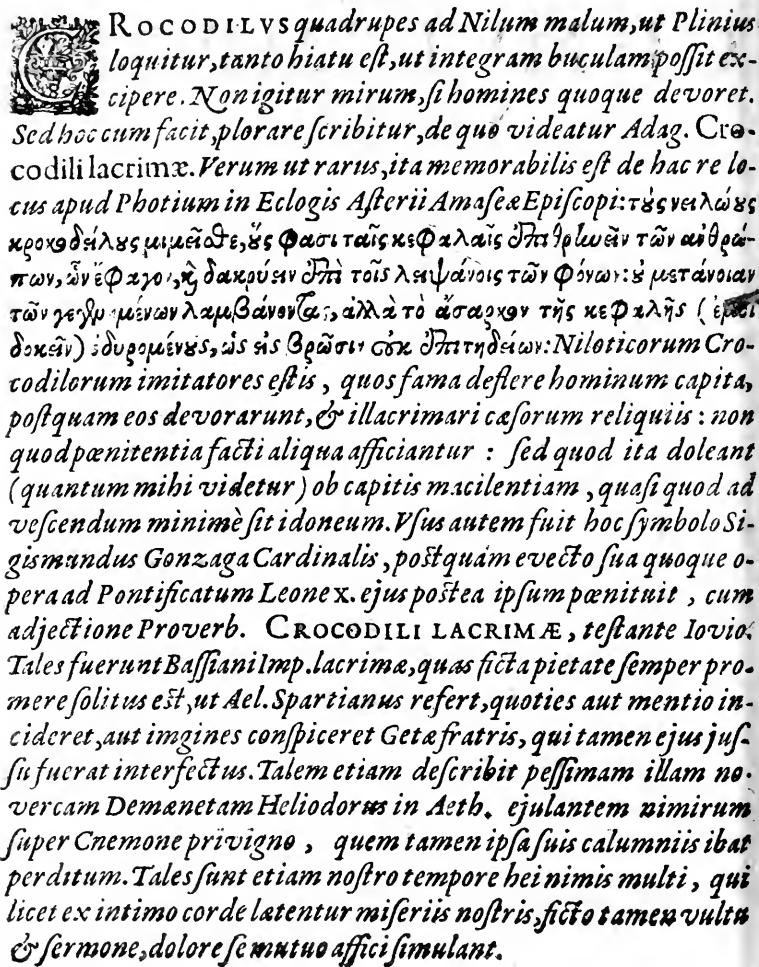 CROCODILVS quadrupes ad Nilum malum, ut Plinius
loquitur, tanto hiatu eſt, ut integram buculam poſſit ex-
cipere. Non igitur mirum, ſi homines quoque devoret.
Sed hoc cum facit, plorare ſcribitur, de quo videatur Adag. Cro-
codili lacrimæ. Verum ut rarus, ita memorabilis eſt de hac re lo-
cus apud Photium in Eclogis Aſterii Amaſeæ Epiſcopi: τȣ̀ς νειλώȣς
κροκοδείλȣς μιμεῖσθε, ȣ̔́ς φασι ταῖς κεφαλαῖς ἐπιθρlωεῖν τῶν ἀνθρώ-
πων, ὧν ἔφαγον, ϗ δακρύειν ἐπὶ τοῖς λειψάνοις τῶν φόνων: ȣ̓ μετάνοιαν
τῶν γεγενημένων λαμβάνοντας, ἀλλὰ τὸ ἄσαρκον τῆς κεφαλῆς (ἐμοὶ
δοκεῖν) ὀδυρομένȣς, ὡς εἰς βρῶσιν ȣ̓κ ἐπιτηδείων: Niloticorum Cro-
codilorum imitatores eſtis, quos fama deflere hominum capita,
poſtquam eos devorarunt, & illacrimari cæſorum reliquiis: non
quod pœnitentia facti aliqua afficiantur: ſed quod ita doleant
(quantum mihi videtur) ob capitis macilentiam, quaſi quod ad
veſcendum minimè ſit idoneum. Vſus autem fuit hoc ſymbolo Si-
gismundus Gonzaga Cardinalis, poſtquam evecto ſua quoque o-
pera ad Pontificatum Leone x. ejus poſtea ipſum pœnituit, cum
adjectione Proverb. CROCODILI LACRIMÆ, teſtante Iovio.
Tales fuerunt Baſſiani Imp. lacrimæ, quas ficta pietate ſemper pro-
mere ſolitus eſt, ut Ael. Spartianus refert, quoties aut mentio in-
cideret, aut imgines conſpiceret Getæ fratris, qui tamen ejus juſ-
ſu fuerat interfectus. Talem etiam deſcribit peſſimam illam no-
vercam Demænetam Heliodorus in Aeth. ejulantem nimirum
ſuper Cnemone privigno, quem tamen ipſa ſuis calumniis ibat
perditum. Tales ſunt etiam noſtro tempore hei nimis multi, qui
licet ex intimo corde lætentur miſeriis noſtris, ficto tamen vultu
& ſermone, dolore ſe mutuo affici ſimulant.